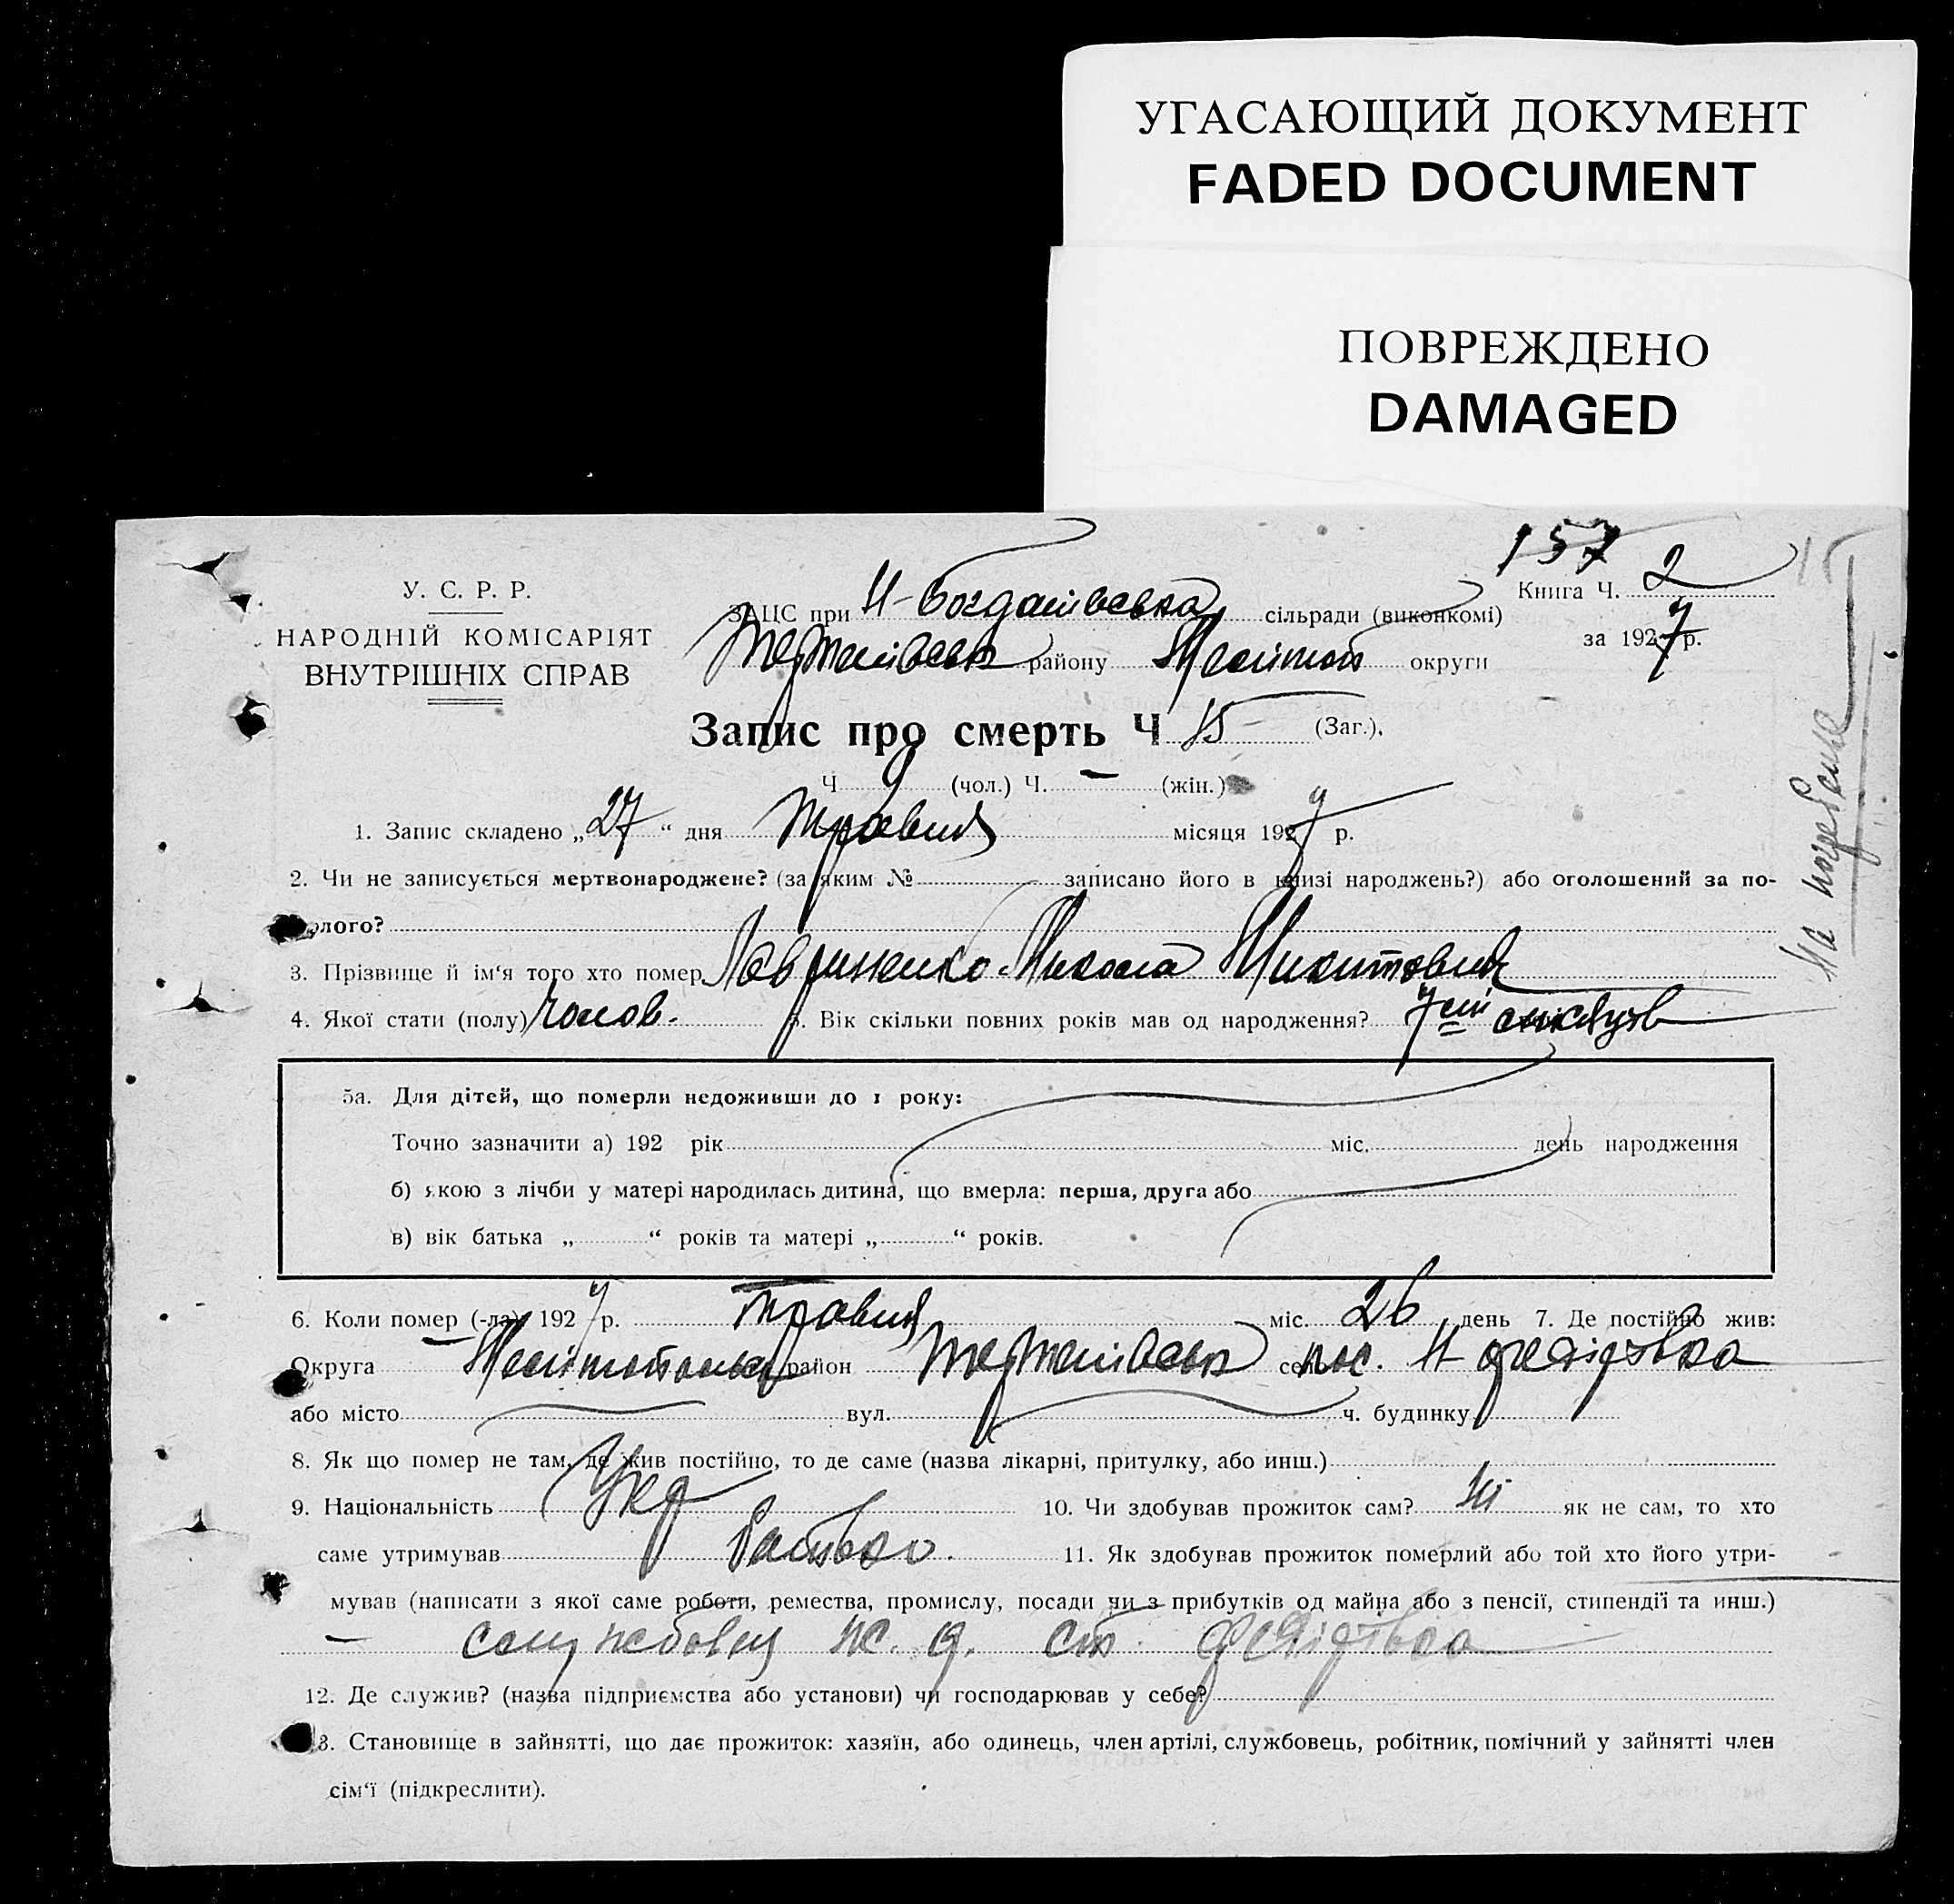 УГАСАЮЩИЙ ДОКУМЕНТ
FADED DOCUMENT
ПОВРЕЖДЕНО
DAMAGED
157
У. С. Р. Р.
НАРОДНІЙ КОМІСАРІЯТ
ВНУТРІШНІХ СПРАВ
Книга Ч. 2
за 1927 р.
ЗАЦС при Н-Богданівська сільради (виконкомі)
району Мелітоп округи
Запис про смерть Ч 15 (Заг.).
Ч 9 (чол.) Ч. — (жін.)
1. Запис складено „27“ дня травня місяця 1927 р.
2. Чи не записується мертвонароджене? (за яким № записано його в книзі народжень?) або оголошений за по-
лого?
3. Прізвище й ім‘я того хто помер Лавриненко Микола Микитович
4. Якої стати (полу) чолов. 5. Вік скільки повних років мав од народження? 7 ми місяців
5а. Для дітей, що померли недоживши до 1 року:
Точно зазначити а) 192 рік міс. день народження
б) якою з лічби у матері народилась дитина, що вмерла: перша, друга або
в) вік батька „ “ років та матері „ “ років.
6. Коли помер (-ла) 1927 р. травня міс. 26 день 7. Де постійно жив:
Округа Мелітопольск район село пос. Н
або місто вул. ч. будинку
8. Як що помер не там, де жив постійно, то де саме (назва лікарні, притулку, або инш.)
9. Національність Укр 10. Чи здобував прожиток сам? Ні як не сам, то хто
саме утримував батько. 11. Як здобував прожиток померлий або той хто його утри-
мував (написати з якої саме роботи, ремества, промислу, посади чи з прибутків од майна або з пенсії, стипендії та инш.)
— службовец ж. д. ст.
12. Де служив? (назва підприємства або установи) чи господарював у себе?
13. Становище в зайнятті, що дає прожиток: хазяїн, або одинець, член артілі, службовець, робітник, помічний у зайнятті член
сім‘ї (підкреслити).
На погребение